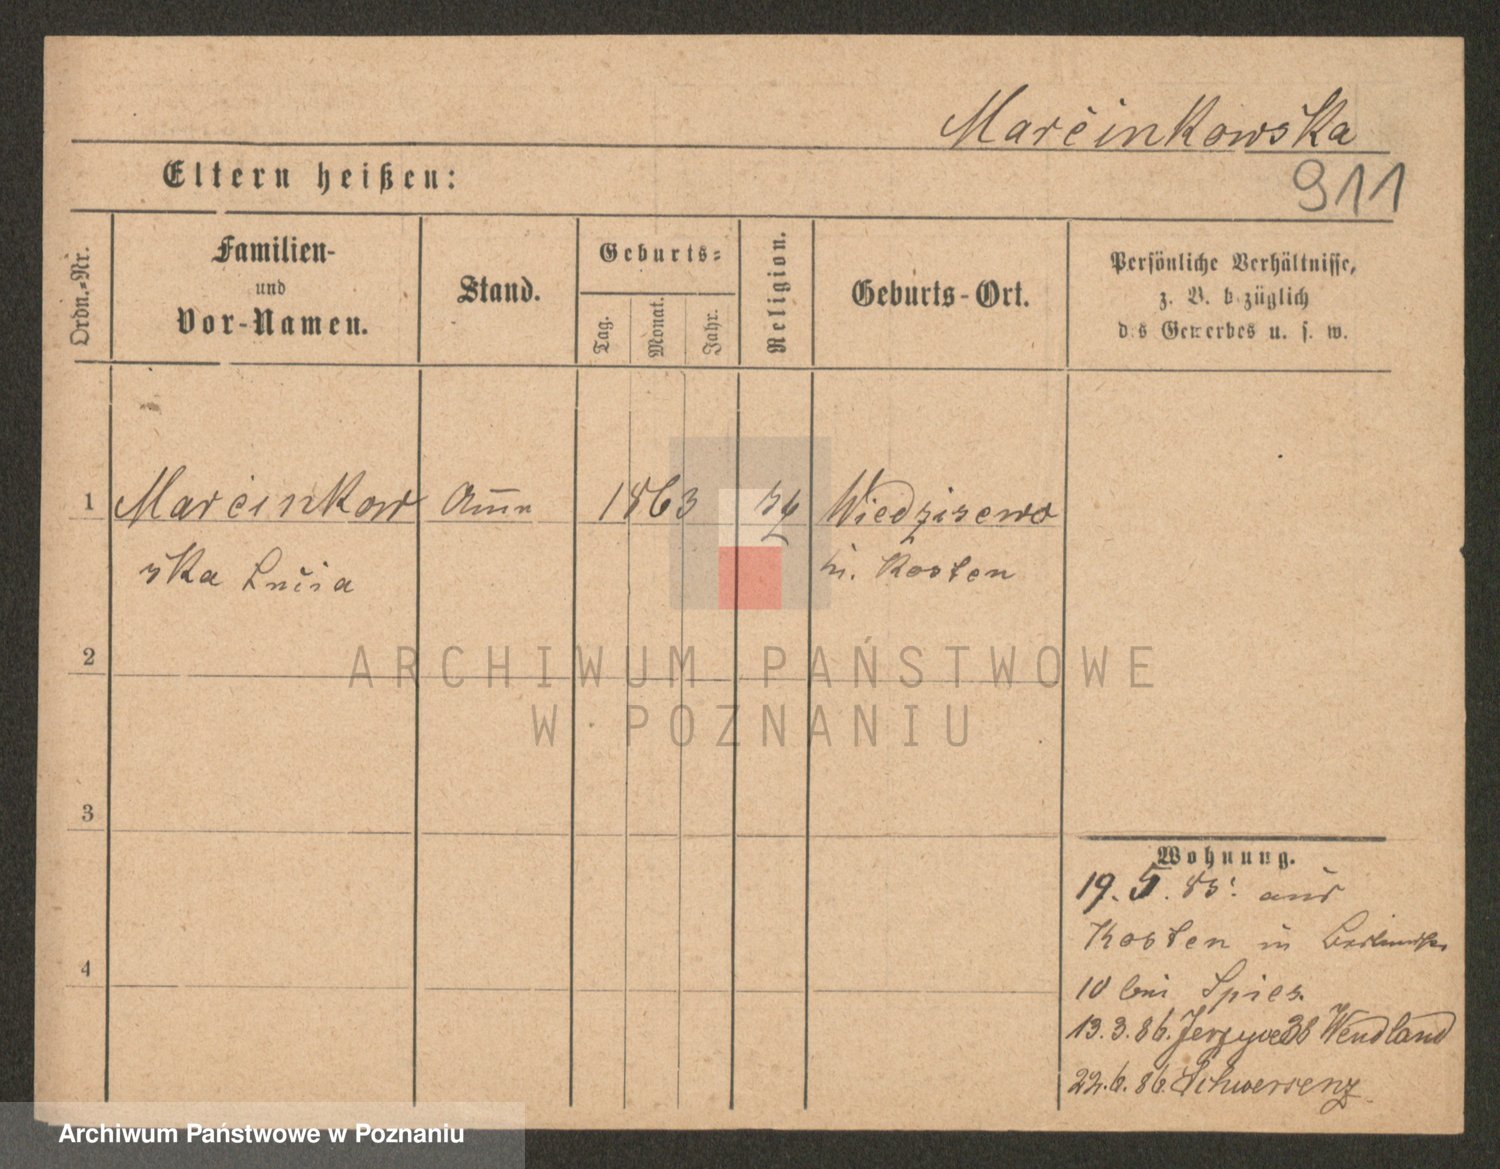 Marcinkowska
911
Eltern heißen:
Ordn.-Nr.
Familien-
und
Vor-Namen.
Stand.
Geburts-
Tag.
Monat.
Jahr.
Religion.
Geburts-Ort.
Persönliche Verhältnisse,
z. B. bezüglich
des Gewerbes u. s. w.
1 Marcinkow Amm 1863 Wiedzisewo
ska Lucia Kosten
2
3
4
ARCHIWUM PAŃSTWOWE
W POZNANIU
Wohnung.
19. 5. 85. aus
Kosten in
10 bei Spies.
13.3.86. 38 Wendland
22.6.86. Schwersenz
Archiwum Państwowe w Poznaniu